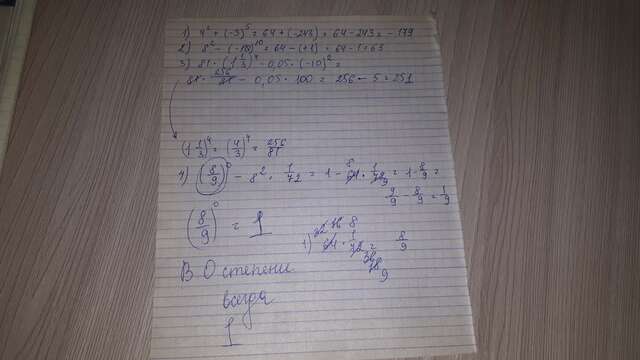 1) 4³ + (-3)⁵ = 64 + (-243) = 64 - 243 = -179
2) 8² - (-1)¹⁰ = 64 - (+1) = 64 - 1 = 63
3) 81 · (1 1/3)⁴ - 0,05 · (-10)² =
81 · 256/81 - 0,05 · 100 = 256 - 5 = 251
(1 1/3)⁴ = (4/3)⁴ = 256/81
4) (8/9)⁰ - 8² · 1/72 = 1 - 64 · 1/72 = 1 - 8/9 =
9/9 - 8/9 = 1/9
(8/9)⁰ = 1
32 16 8
1) 64 · 1/72 = 8/9
36 18 9
В 0 степени
всегда
1